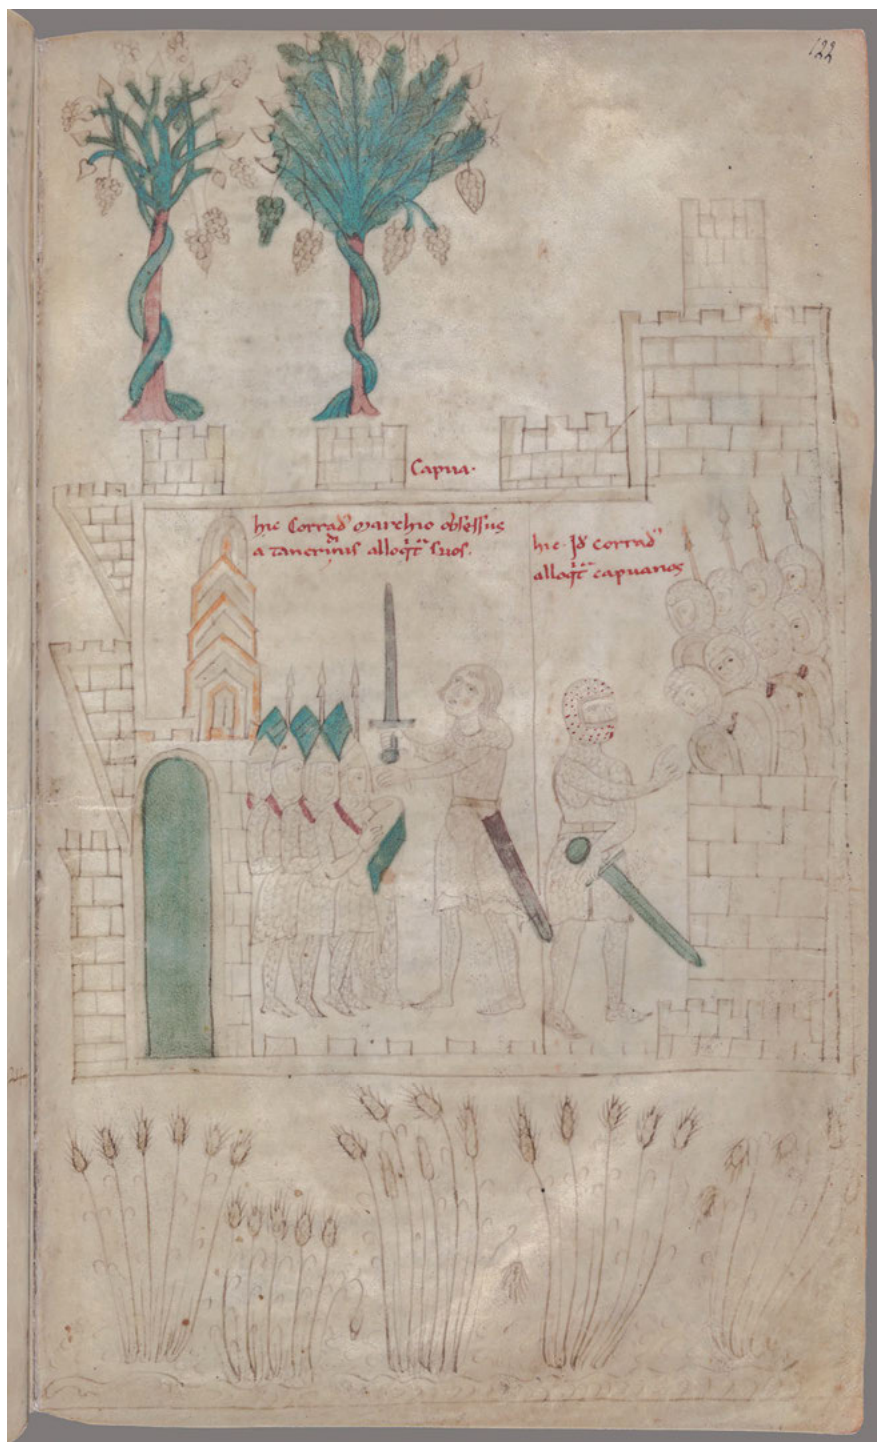 122
Capua.
hic Corrad9 marchio obsessus
a tancridinis alloqt~ suos.
hic. Id~ corrad9
alloqt~ capuanos